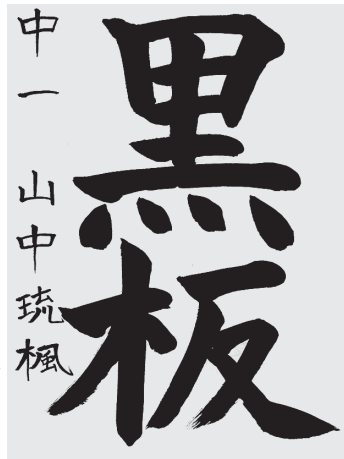 黒板
中一 山中琉楓